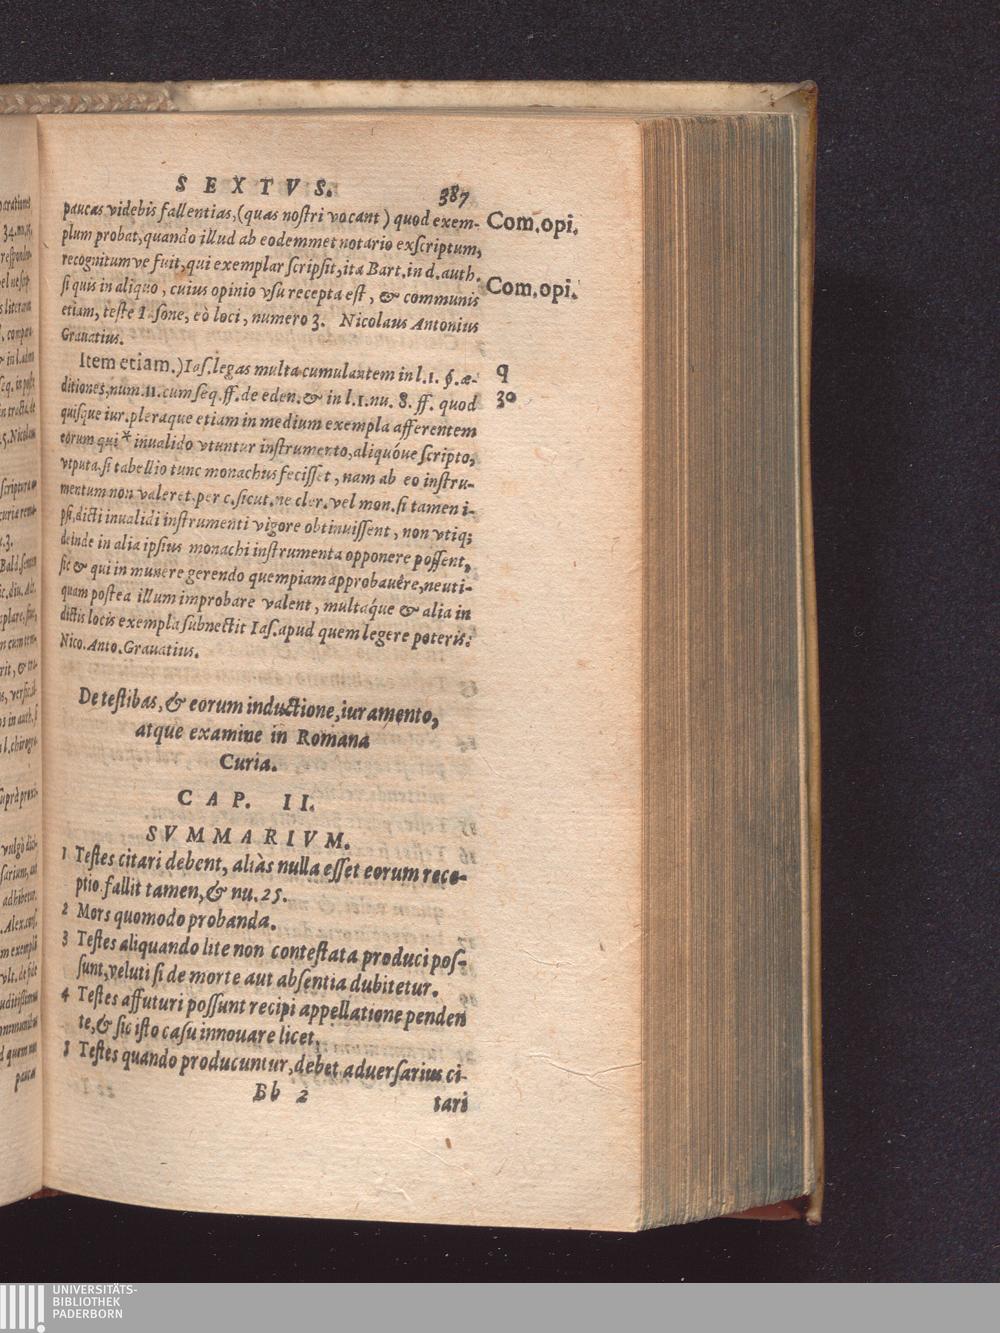 SEXTVS. 387
paucas videbis fallentias, (quas nostri vocant) quod exem-
Com.opi.
plum probat, quando illud ab eodemmet notario exscriptum,
recognitumve fuit, qui exemplar scripsit, ita Bart. in d. auth.
si quis in aliquo, cuius opinio vsu recepta est, & communis
Com.opi.
etiam, teste Iasone, eò loci, numero 3. Nicolaus Antonius
Grauatius.
Item etiam.) Ias. legas multa cumulantem in l. 1. §. æ-
q
ditiones, num. 11. cum seq. ff. de eden. & in l. 1. nu. 8. ff. quod
30
quisque iur. pleraque etiam in medium exempla afferentem
eorum qui * inualido vtuntur instrumento, aliquóue scripto,
vtputa. si tabellio tunc monachus fecisset, nam ab eo instru-
mentum non valeret. per c. sicut. ne cler. vel mon. si tamen i-
psi, dicti inualidi instrumenti vigore obtinuissent, non vtiq;
deinde in alia ipsius monachi instrumenta opponere possent,
sic & qui in munere gerendo quempiam approbauêre, neuti-
quam postea illum improbare valent, multáque & alia in
dictis locis exempla subnectit Ias. apud quem legere poteris:
Nico. Anto. Grauatius.
De testibas, & eorum inductione, iuramento,
atque examine in Romana
Curia.
CAP. II.
SVMMARIVM.
1 Testes citari debent, aliàs nulla esset eorum rece-
ptio. fallit tamen, & nu. 25.
2 Mors quomodo probanda.
3 Testes aliquando lite non contestata produci pos-
sunt, veluti si de morte aut absentia dubitetur.
4 Testes affuturi possunt recipi appellatione penden
te, & sic isto casu innouare licet.
5 Testes quando producuntur, debet aduersarius ci-
Bb 2 tari
UNIVERSITÄTS-
BIBLIOTHEK
PADERBORN